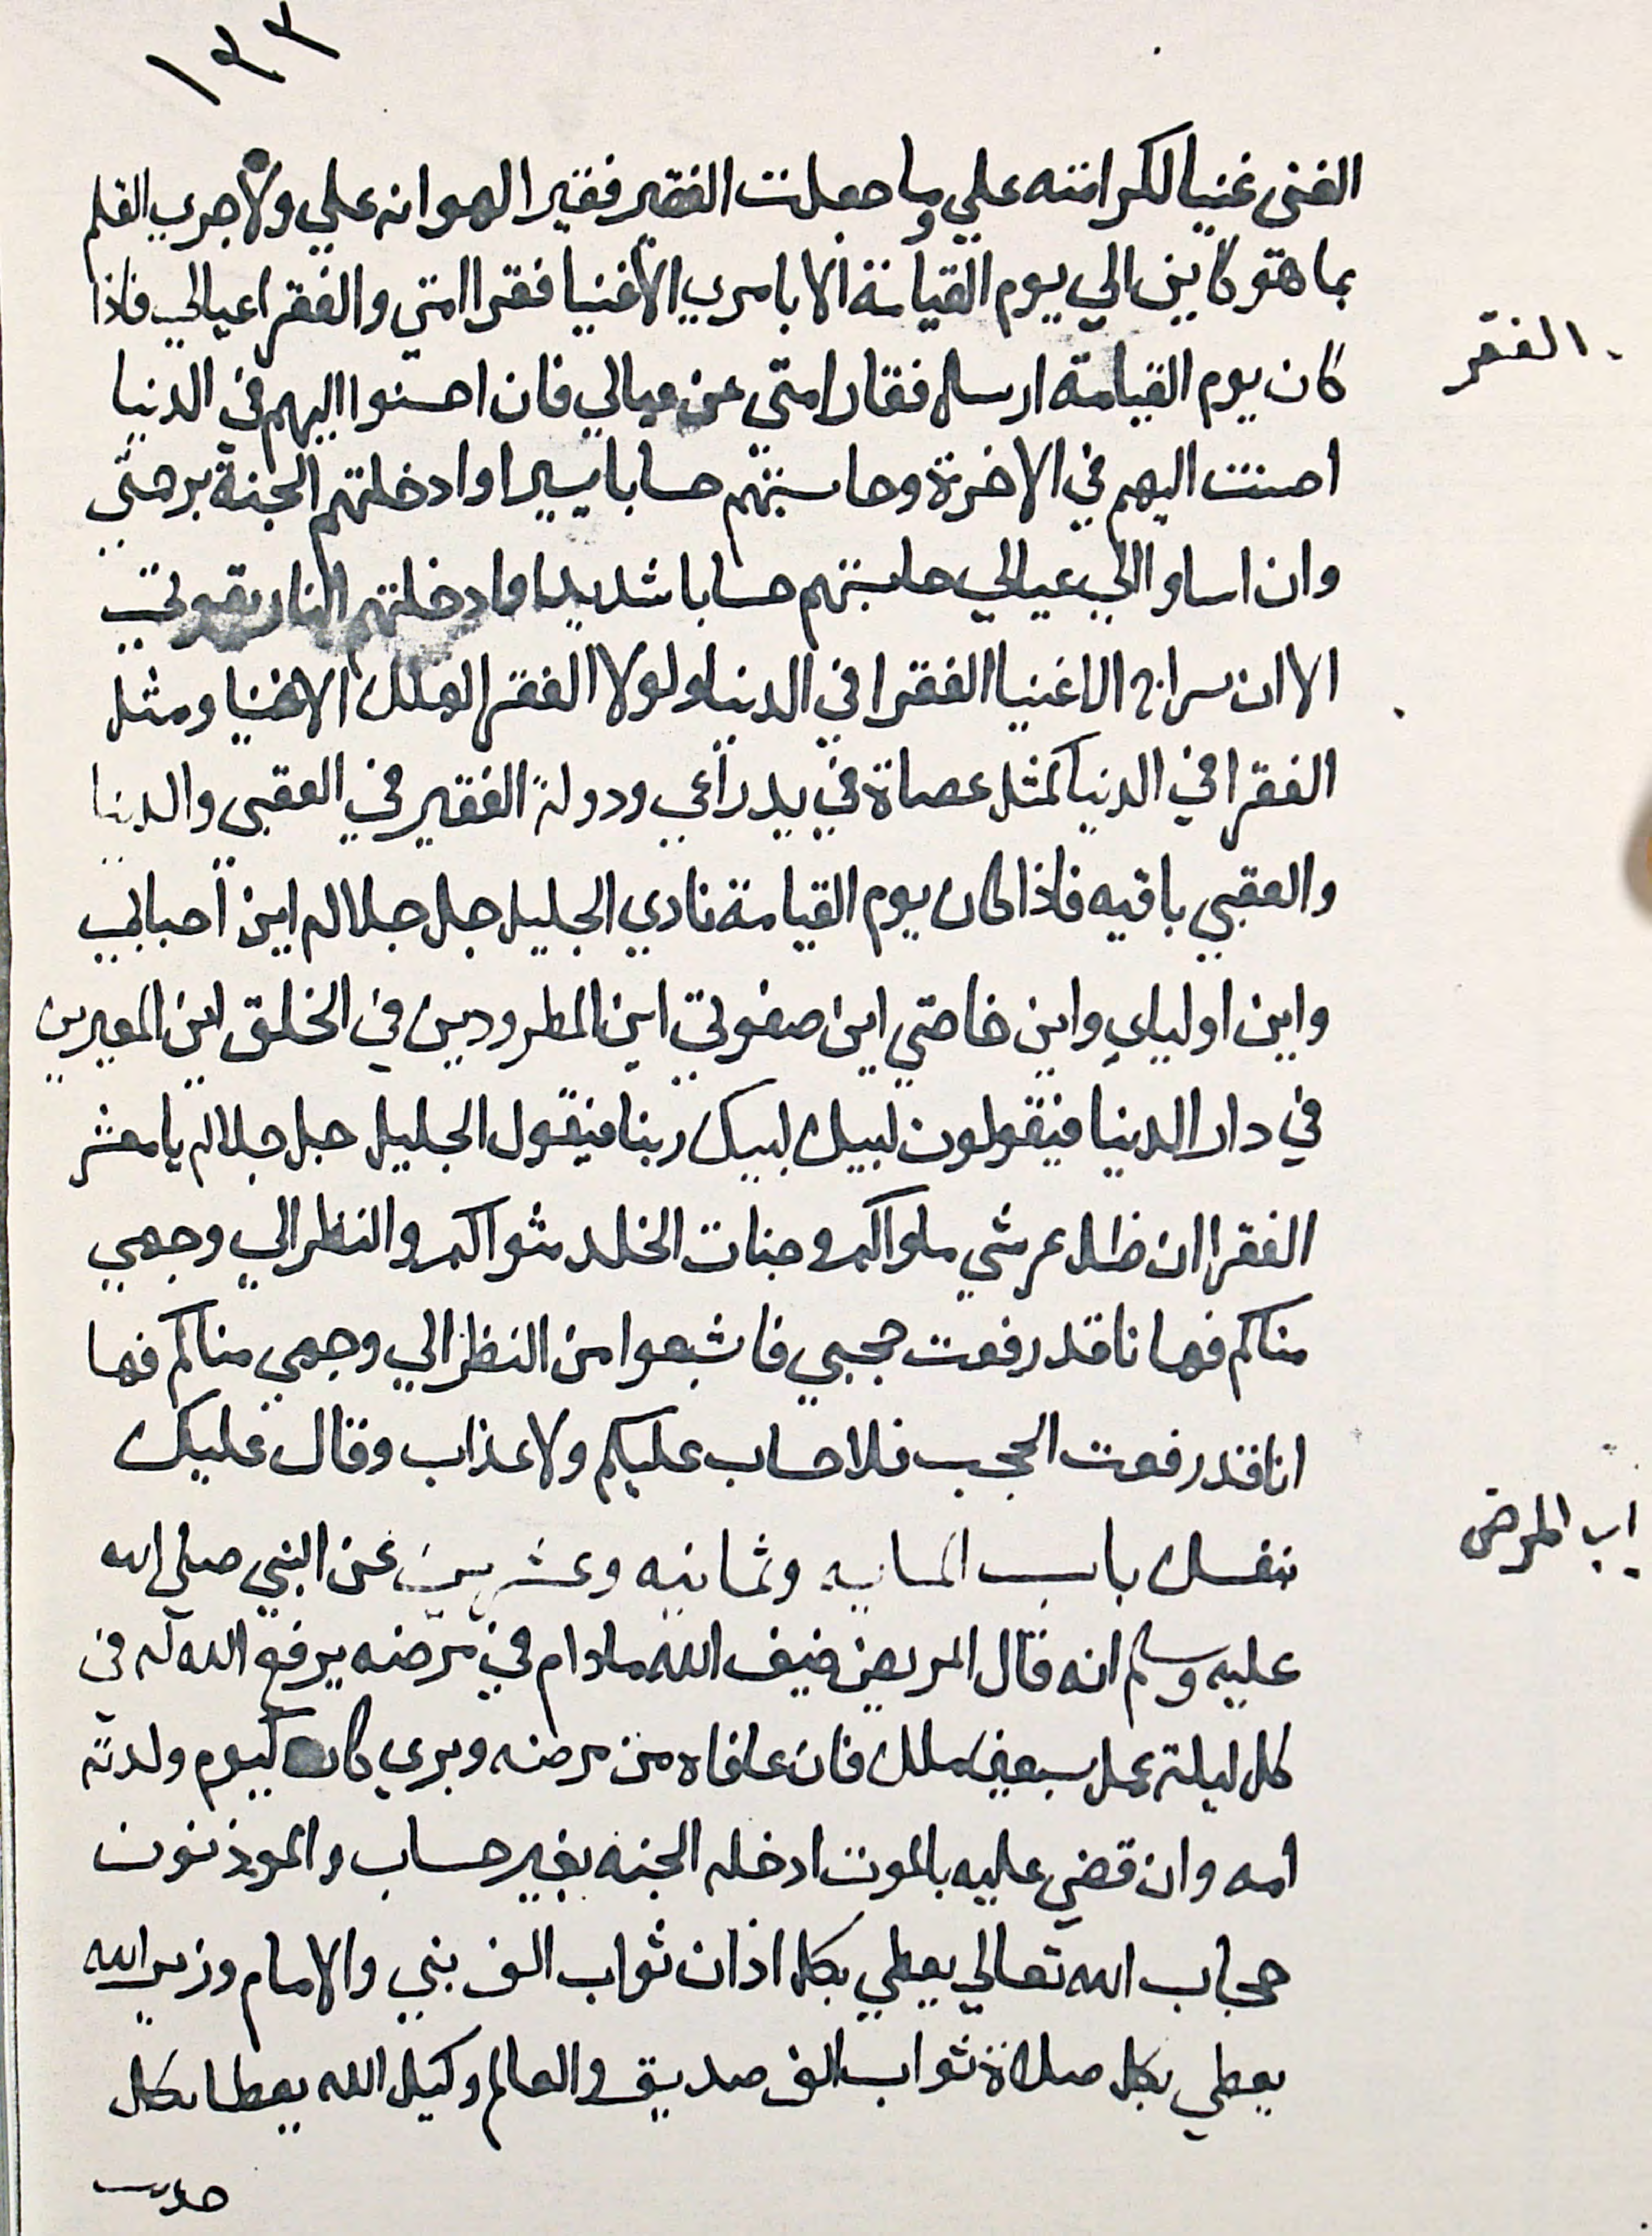 ١٣٣
الغنى غنيا لكرامته علي وما جعلت الفقير فقيرا لهوانه علي ولا جري القلم
بما هو كاين الي يوم القيامة الا بامري الأغنيا فقرا امتي والفقرا عيالي فاذا
الفقر
كان يوم القيامة ارسله فقارا متى عن عيالي فان احسنوا اليهم في الدنيا
احسنت اليهم في الاخرة وحاسبتهم حسابا يسيرا وادخلتهم الجنة برحمتي
وان اساوا الي عيالي حاسبتهم حسابا شديدا وادخلتهم النار بقوتي
الا ان سراج الاغنيا الفقرا في الدنيا ولولا الفقرا لهلك الاغنيا ومثل
الفقرا في الدنيا كمثل عصاة في يد راعي ودولة الفقير في العقبى والدنيا
والعقبي باقيه فاذا كان يوم القيامة نادي الجليل جل جلاله اين احبابي
واين اولياي واين خاصتي اين صفوتي اين المطرودين في الخلق اين المعيرين
في دار الدنيا فيقولون لبيك لبيك ربنا فيقول الجليل جل جلاله يا معشر
الفقرا ان ظل عرشي ماواكم وجنات الخلد مثواكم والنظر الي وجهي
مناكم فها نا قد رفعت حجبي فاشبعوا من النظر الي وجهي مناكم فها
انا قد رفعت الحجب فلا حساب عليكم ولا عذاب وقال عليك
نفسك باب الماية وثمانيه وعشرين عن النبي صلي الله
اب المرض
عليه وسلم انه قال المريض ضيف الله مادام في مرضه يرفع الله له في
كل ليلة عمل سبعين ملك فان عافاه من مرضه وبري كان كيوم ولدته
امه وان قضي عليه بالموت ادخله الجنه بغير حساب والموذنون
حجاب الله تعالي يعطي بكل اذان ثواب الف نبي والامام وزير الله
يعطي بكل صلاة ثواب الف صديق والعالم وكيل الله يعطا بكل
حديث